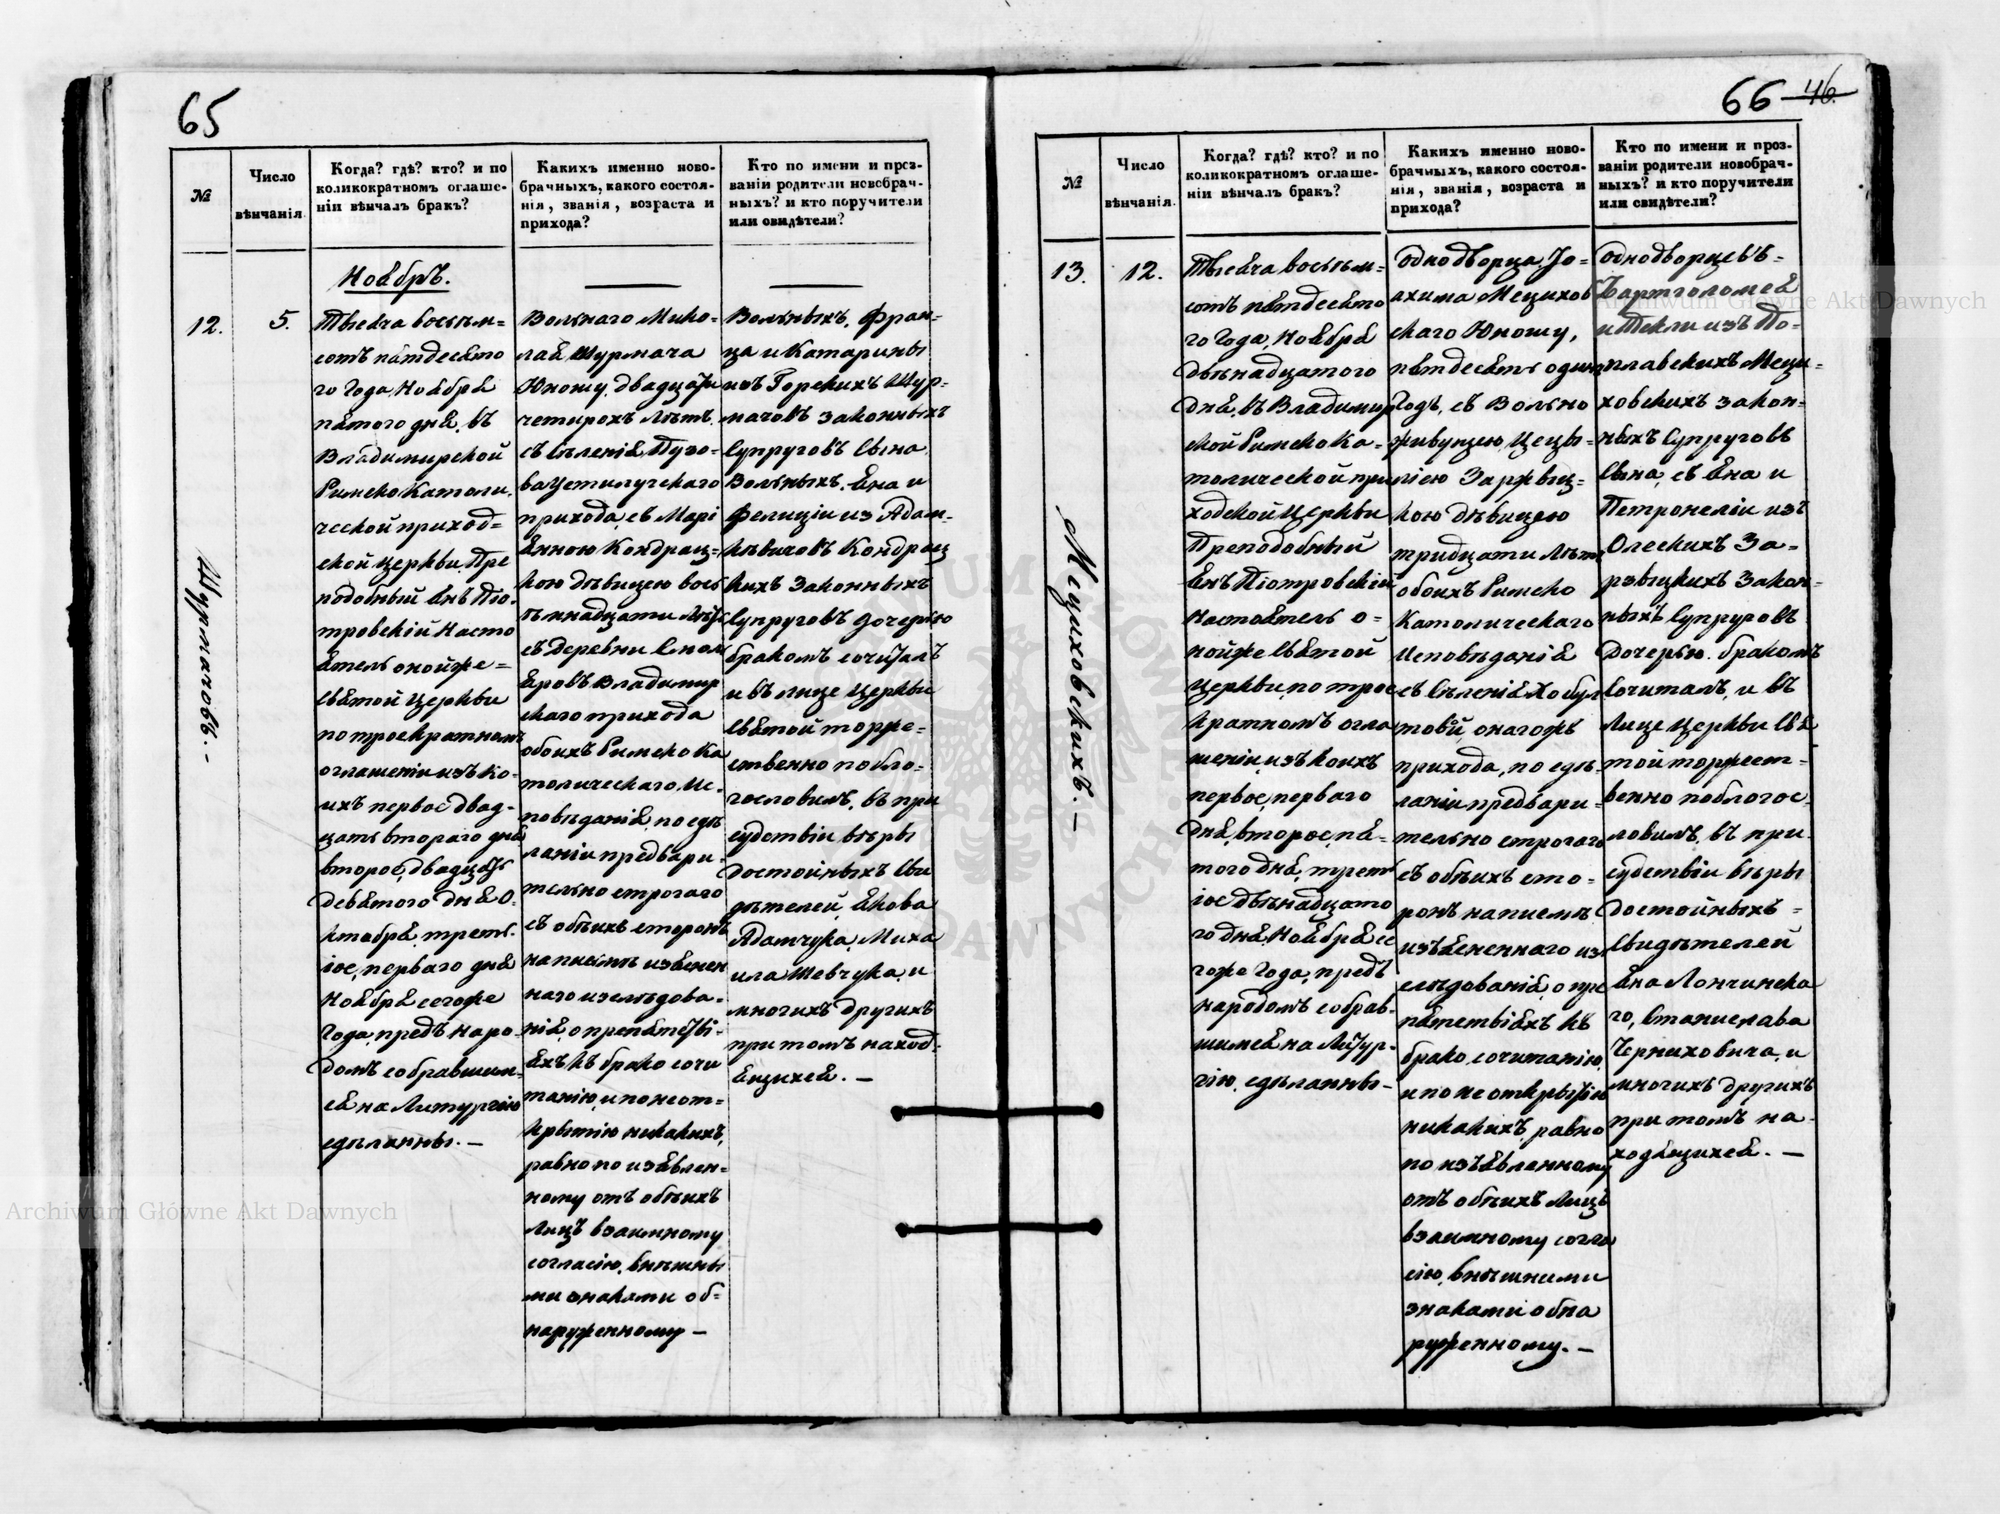 65
№
Число
вѣнчанія.
Когда? гдѣ? кто? и по
коликократномъ оглаше-
ніи вѣнчалъ бракъ?
Какихъ именно ново-
брачныхъ, какого состоя-
нія, званія, возраста и
прихода?
Кто по имени и проз-
ваніи родители новобрач-
ныхъ? и кто поручители
или свидѣтели?
Шурмаковъ. -
12.
5.
Ноябръ.
Тысяча восемь=
сотъ пятдесято
го Года, Ноября
пятого дня, въ
Владимирской
Римско Католи,
ческой приход=
ской церкви, Пре
подобный Янъ Піо-
тровскій Насто
ятель онойже=
Святой Церкви
по троекратномъ
оглашеніи изъ Ко-
ихъ первое двад-
цать второго дня
второе, двадцать
девятого дня О-
ктобря, треть-
іое, первого дня
Ноября сегоже
Года, предъ наро-
домъ собравшим-
ся на Литургію
сдѣланны. —
Вольнаго Мико-
лая Шурмача
Юношу, двадцати
четирохъ лѣтъ.
съ Сѣленія Пузо-
ва Устилугскаго
прихода, съ Марі
янною Кондрац=
кою дѣвицею вось
ьмнадцати лѣтъ
съ деревни Смол
яровъ Владимир
скаго прихода
обоихъ Римско Ка
толическаго Ис-
повѣданія, по сдѣ
ланіи предвари-
тельно строгаго
съ обѣихъ сторонъ
на письмѣ изъясен
наго изслѣдова-
нія, о препятстві-
яхъ къ брако сочи
танію, и по неот=
крытію никакихъ,
равно по изъявлен=
ному отъ обѣихъ
Лицъ взаимному
согласію, внѣшны
ми знаками об=
наруженному —
Вольныхъ, Фран=
ца и Катарины
изъ Горскихъ Шур-
мачовъ законныхъ
Супруговъ Сына,
Вольныхъ, Яна и
Фелиціи из Адам-
кѣвичовъ Кондрац
кихъ Законныхъ
Супруговъ дочерью
бракомъ сочиталъ
и въ лице Церкви
Святой торже-
ственно побло-
гословилъ, въ при
судствіи вѣры
достойныхъ Сви
дѣтелей, Якова
Адамчука, Миха
ила Шевчука, и
многихъ другихъ
при томъ наход-
ящихся. —
66 46.
№
Число
вѣнчанія.
Когда? гдѣ? кто? и по
коликократномъ оглаше-
ніи вѣнчалъ бракъ?
Какихъ именно ново-
брачныхъ, какого состоя-
нія, званія, возраста и
прихода?
Кто по имени и проз-
ваніи родители новобрач-
ныхъ? и кто поручители
или свидѣтели?
Мециховскихъ. —
13.
12.
Тысяча восемь=
сотъ пятдесято
го Года, Ноября
двѣнадцатого
дня, въ Владимир
ской Римско Ка-
толической при
ходской Церкви
Преподобный
Янъ Піотровскій
Настоятель о-
нойже Святой
Церкви, по трое
кратномъ огла
шеніи, изъ коихъ
первое, первого
дня, второе, пя-
того дня, треть
іое двѣнадцато
го дня, Ноября се
гоже Года, предъ
народомъ собрав-
шимся на Литур-
гію, сдѣланны-
Однодворца Іо-
ахима Мецихов
скаго Юношу,
пятдесять один
Годъ, съ Вольно
живущею Цецы-
ліею Заржыц-
кою дѣвицею
тридцати Лѣтъ,
обоихъ Римско
Католическаго
Исповѣданія
съ Сѣленія Хобул
товй, оногожъ
прихода, по сдѣ-
ланіи предвари-
тельно строгаго
съ обѣихъ сто-
ронъ на писмѣ,
изъясненнаго из
слѣдованія, о пре
пятствіяхъ къ
брако сочитанію,
и по не открытію
никакихъ, равно
по изъявленному
отъ обѣихъ Лицъ
взаимному согла
сію, внѣшними
знаками обна
руженному. —
Однодворцевъ=
Бартоломея
и Теклі изъ По-
плавскихъ Меци-
ховскихъ закон-
ныхъ Супруговъ
Сына, съ Яна и
Петронеліи изъ
Олескихъ За-
ржыцкихъ Закон-
ныхъ Супруговъ
Дочерью, бракомъ
Сочиталъ, и въ
Лице Церкви Свя
той торжест-
венно поблогос-
ловилъ, въ при-
судствіи вѣры
достойныхъ=
Свидѣтелей
Яна Лончинска
го, Станислава
Черниховича, и
многихъ другихъ
при томъ на-
ходящихся. —
Archiwum Główne Akt Dawnych
Archiwum Główne Akt Dawnych